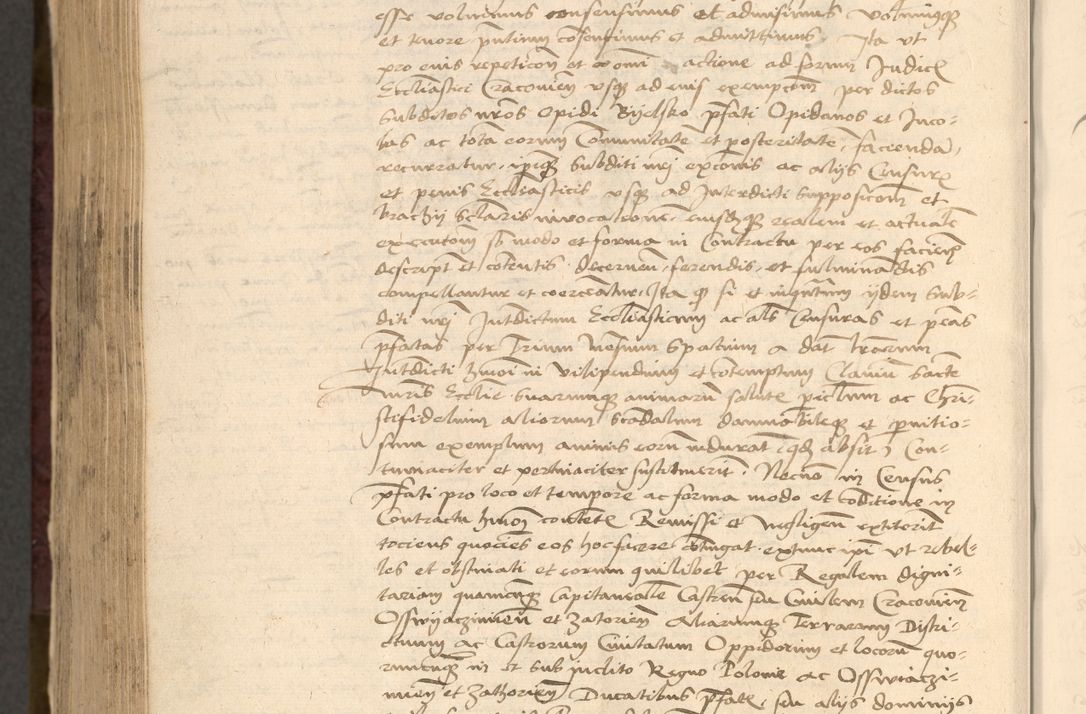 esse volumus consensimus et admisimus Volumusque
et tenore pntium cosentimus et admittimus Ita ut
pro euis repeticon et omni actione ad formm Judicy
Ecclasticj Cracouien vsq ad euis exempcom per dictos
Subditos nros Opidi Bijelsko pfati Opidanos et Inco-
las ac tota eorum Comunitate et posteritate faciendā
recurratur, ipiq Subditi nrj exconis ac alijs Censuris
et penis Ecclasticis vsq ad Interdicti supposicom et
brachij sclaris inuocatone, eiusdq realem et actuale
execucom sb modo et forma in Contractu per eos facien
descript et cotentis decernen, ferendis, et fulminadis
compellantur et coerceatur, Ita q si et inqutum ijdem Sub-
diti nrj Intdictum Ecclasticum ac als Censuras et penas
pfatas per Trium mesium spatium a dat trarum
Intdicti hmoi in vilipendium et cotemptum Clauiu sancte
mris Ecclie suarumq animaru salute piclum ac Chri-
stifidelium aliorum scadalum damnabileq et pnitio-
sum exemplum animis eoru indurat (qd absit) Con-
tumaciter et pertinaciter sustinuerit. Necno in Census
pfati pro loco et tempore ac forma modo et coditione in
Contractu hmoi contete Remissi et negligen extiterit
tociens quocies eos hoc facere cotingat extunc ipi ut rebel-
les et obstinati et eorum quilibet per Regalem digni-
tariam quamcunq Capitanealle Castren seu Ciuilem Cracouien
Osswyaczimien et Zatorien Aliarumq Terrarum Distri-
ctuum ac Castrorum Ciuitatum Oppidorum et locoru quo-
rumcunq in et sub inclito Regno Polonie ac Osswiaczi-
mien et Zathorien Ducatibus pfate, seu alijs dominijs